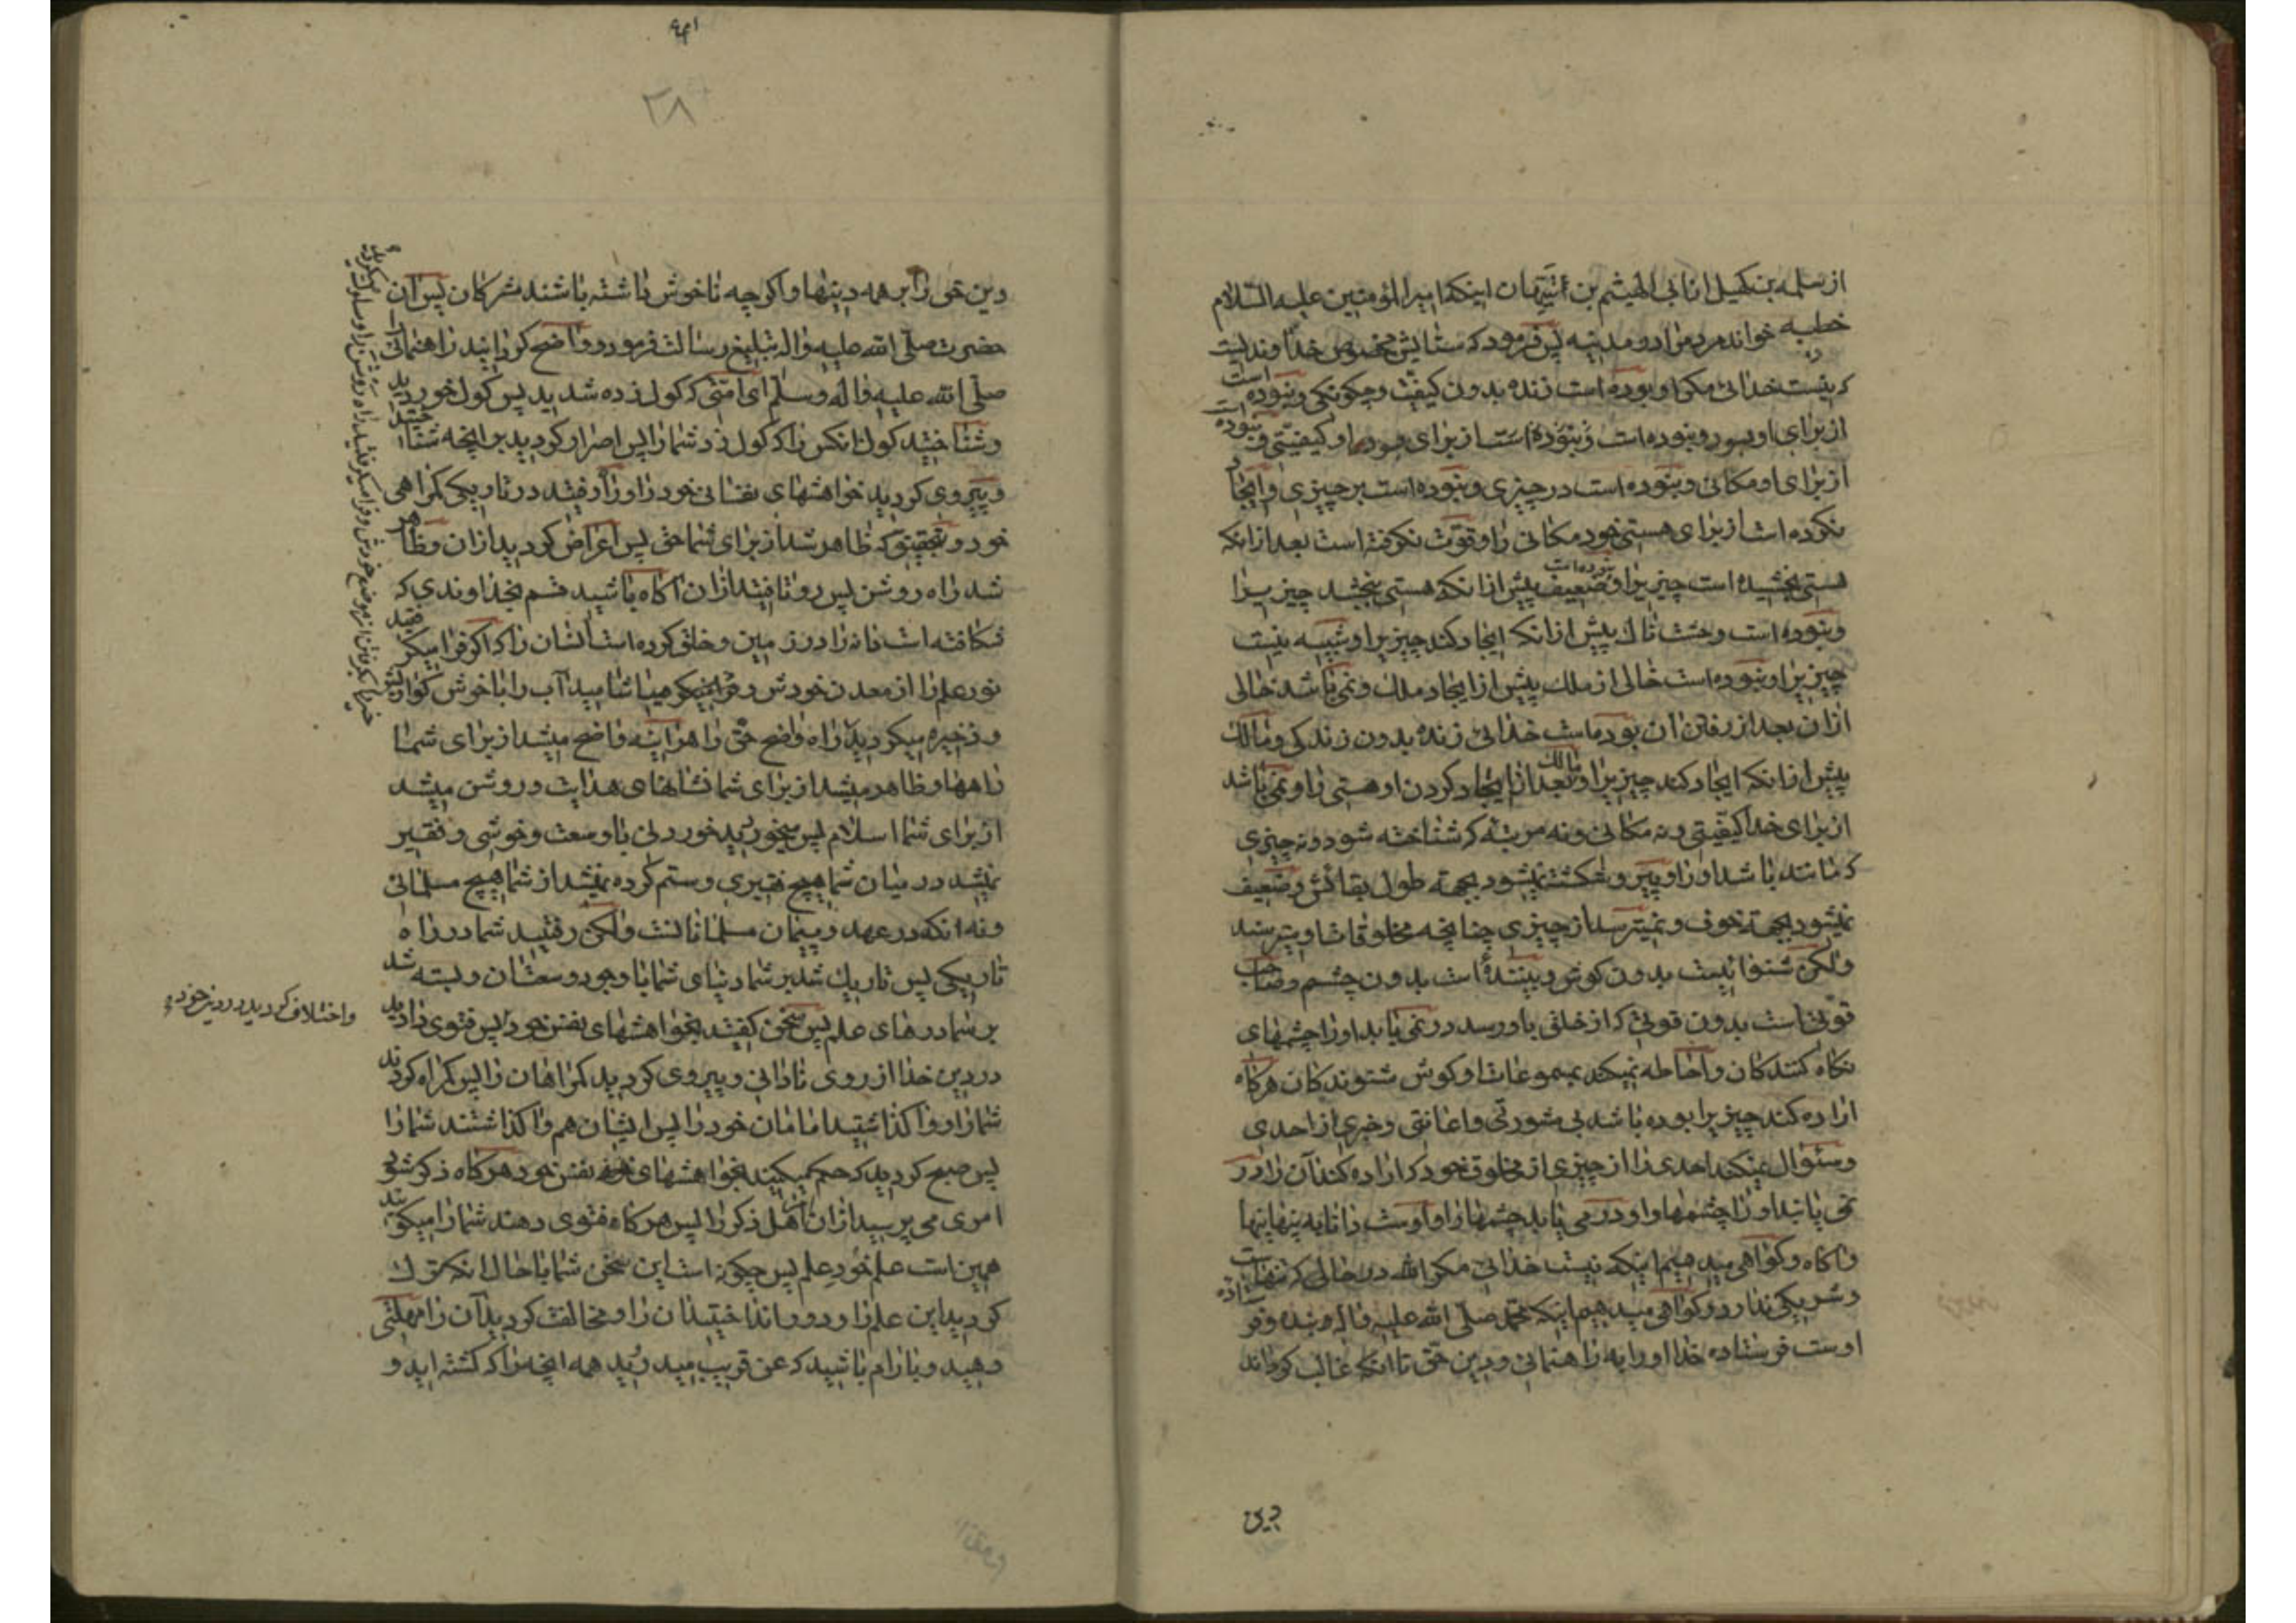 از سلمه بن کهیل از ابی الهیثم بن التیهان اینکه امیر المؤمنین علیه السّلام
خطبه خواند مردمرا در مدینه پس فرمود که ستایش مخصوص خداوندیست
که نیست خدائی مگر او بوده است زنده بدون کیفیّت و چگونگی و نبوده است
از برای او بود و نبوده است و نبوده است از برای بود او کیفیّتی و نبوده است
از برای او مکانی و نبوده است در چیزی و نبوده است بر چیزی و ایجاد
نکرده است از برای هستی خود مکانی را و قوّت نگرفته است بعد از انکه
هستی بخشیده است چیزیرا و ضعیف نبوده است پیش از انکه هستی بخشد چیزیرا
و نبوده است وحشت ناک پیش از انکه ایجاد کند چیزیرا و شبیه نیست
چیزیرا و نبوده است خالی از ملک پیش از ایجاد ملک و نمی باشد خالی
از ان بعد از رفتن ان بوده است خدائی زنده بدون زندگی و مالک
پیش از انکه ایجاد کند چیزیرا و مالک بعد از ایجاد کردن او هستی را و نمی باشد
از برای خدا کیفیّتی و نه مکانی و نه مرتبه که شناخته شود و نه چیزی
که مانند باشد او را و پیر و شکسته نمیشود بجهة طول بقائش و ضعیف
نمیشود بجهة خوف و نمیترسد از چیزی چنانچه مخلوقات او میترسند
و لکن شنوا نیست بدون گوش و بیننده است بدون چشم و صاحب
قوّتی است بدون قوتی که از خلقی باو رسد در نمی یابد او را چشمهای
نگاه کنندگان و احاطه نمیکند بمسموعات او گوش شنوندگان هرگاه
اراده کند چیزیرا بوده باشد بی مشورتی و اعانتی و خبری از احدی
و سئوال نمیکند احدی را از چیزی از مخلوق خود که اراده کند آن را در
نمی یابند او را چشمها و او در می یابد چشمها را و اوست دانا به پنهانیها
و اگاه و گواهی میدهیم اینکه نیست خدائی مگر الله در حالی که تنهاست
و شریکی ندارد و گواهی میدهیم اینکه محمّد صلّی الله علیه و اله بنده و فرستاده
اوست فرستاده خدا او را به راهنمائی و دین حق تا انکه غالب گرداند
دین
۲۸
دین حق را بر همه دینها و اگر چه ناخوش داشته باشند مشرکان پس آن
حضرت صلّی الله علیه و اله تبلیغ رسالت فرمود و واضح گردانید راهنمائی را
صلّی الله علیه و اله و سلّم ای امّتی که گول زده شدید پس گول خوردید
و شناختید گول انکس را که گول زد شما را پس اصرار کردید بر انچه شناختید
و پیروی کردید خواهشهای نفسانی خود را و راه رفتید در تاریکی گمراهی
خود و بتحقیق که ظاهر شد از برای شما حق پس اعراض کردید از ان و ظاهر
شد راه روشن پس رو تافتید از ان اگاه باشید قسم بخداوندی که
شکافته است دانه را در زمین و خلق کرده است انسان را که اگر فرا میگرفتید
نور علم را از معدن خودش و میاشامیدید آب را با خوش گواریش
و ذخیره میکردید راه واضح حق را هراینه واضح میشد از برای شما
راهها و ظاهر میشد از برای شما نشانهای هدایت و روشن میشد
از برای شما اسلام پس میخوردید خوردنی با وسعت و خوشی و فقیر
نمیشد در میان شما هیچ فقیری و ستم کرده نمیشد از شما هیچ مسلمانی
و نه انکه در عهد و پیمان مسلمانانست و لکن رفتید شما در راه
تاریکی پس تاریک شد بر شما دنیای شما با وجود وسعت ان و بسته شد
بر شما درهای علم پس سخن گفتید بخواهشهای نفس خود پس فتوی دادید
در دین خدا از روی نادانی و پیروی کردید گمراهان را پس گمراه کردند
شما را و واگذاشتید امامان خود را پس ایشان هم واگذاشتند شما را
پس صبح کردید که حکم میکنید بخواهشهای نفس خود هرگاه ذکر شود
امری می پرسید از ان اهل ذکر را پس هرگاه فتوی دهند شما را میگوئید
همین است علم خود علم پس چگونه است این سخن شما با حال انکه ترک
کردید این علم را و دور انداختید ان را و مخالفت کردید آن را مهلتی
دهید و بارام باشید که عن قریب میدروید همه انچه را که کشته اید و
و اختلاف کردید در دین خود